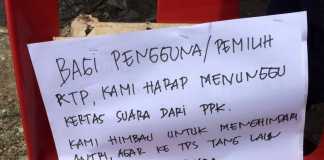 BAGI PENGGUNA/PEMILIH
KTP, KAMI HARAP MENUNGGU
KERTAS SUARA DARI PPK.
KAMI HIMBAU UNTUK MENGHINDARI
ANTRI, AGAR KE TPS YANG LAIN